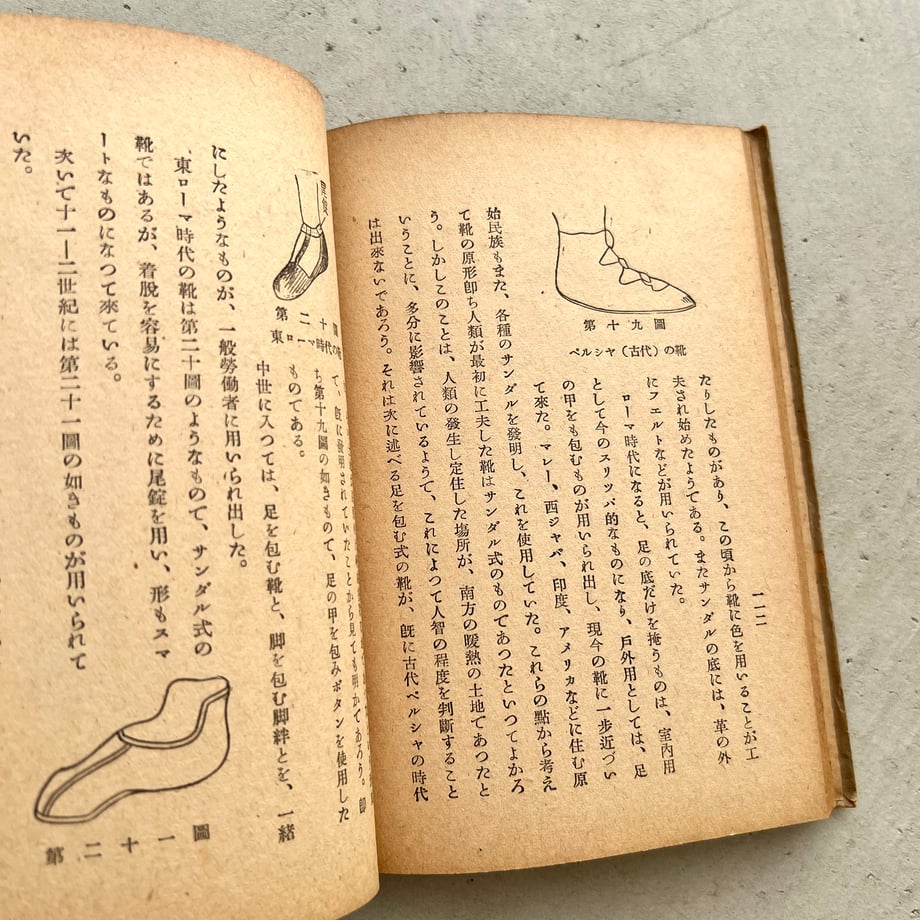 一一二
たりしたものがあり、この頃から靴に色を用いることが工
夫され始めたようである。またサンダルの底には、革の外
にフェルトなどが用いられていた。
ローマ時代になると、足の底だけを掩うものは、室內用
として今のスリッパ的なものになり、戶外用としては、足
の甲をも包むものが用いられ出し、現今の靴に一步近づい
て來た。マレー、西ジャバ、印度、アメリカなどに住む原
第十九圖
ペルシャ(古代)の靴
始民族もまた、各種のサンダルを發明し、これを使用していた。これらの點から考え
て靴の原形卽ち人類が最初に工夫した靴はサンダル式のものてあつたといつてよかろ
う。しかしこのことは、人類の發生し定住した場所が、南方の暖熱の土地であつたと
いうことに、多分に影響されているようで、これによつて人智の程度を判斷すること
は出來ないであろう。それは次に述べる足を包む式の靴が、旣に古代ペルシャの時代
て、旣に發明されていたことから見ても明かてあろう。卽
ち第十九圖の如きもので、足の甲を包みボタンを使用した
ものである。
中世に入つては、足を包む靴と、脚を包む脚絆とを、一緖
第二十圖
東ローマ時代の靴
にしたようなものが、一般勞働者に用いられ出した。
東ローマ時代の靴は第二十圖のようなもので、サンダル式の
靴ではあるが、着脫を容易にするために尾錠を用い、形もスマ
ートなものになつて來ている。
次いで十一―二世紀には第二十一圖の如きものが用いられて
いた。
第二十一圖